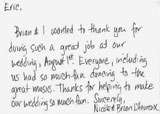 Eric,
Brian & I wanted to thank you for
doing such a great job at our
wedding, August 1st. Everyone, including
us had so much fun dancing to the
great music. Thanks for helping to make
our wedding so much fun. Sincerely,
Nicole & Brian